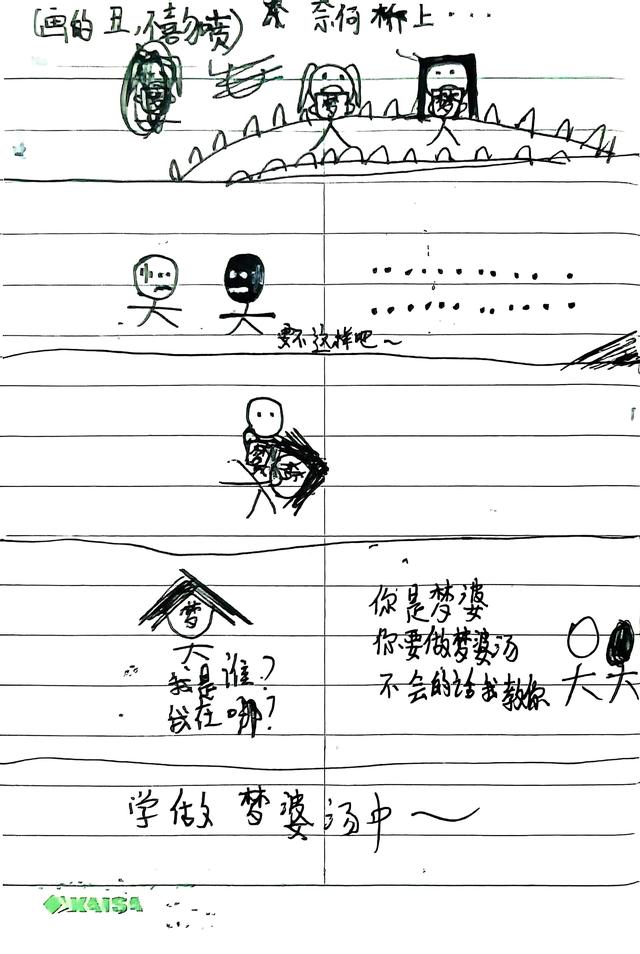 (画的丑,不喜勿喷) 奈何桥上···
梦 梦
要不这样吧~
梦
我是谁?
我在哪?
你是梦婆
你要做梦婆汤
不会的话我教你
学做梦婆汤中~
KAISA